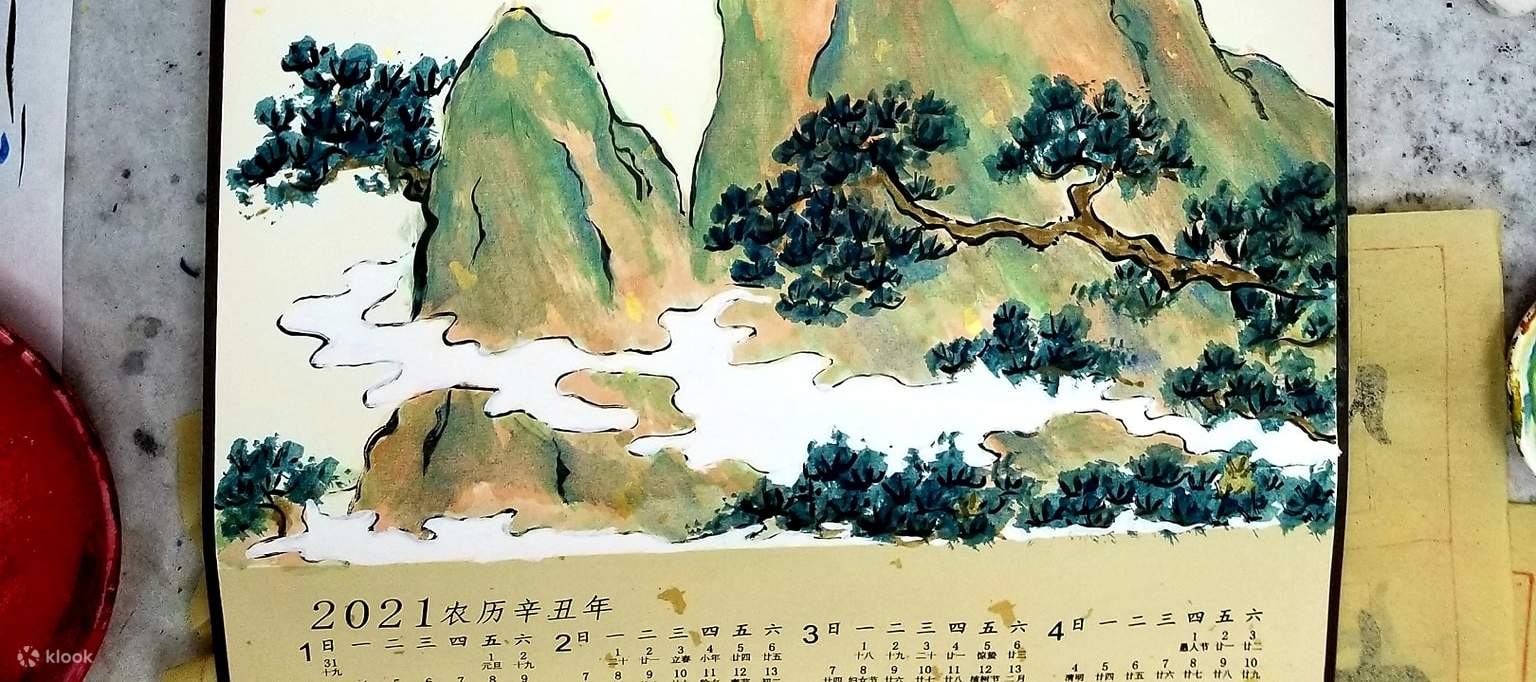 2021农历辛丑年
1 日 一 二 三 四 五 六
1 2
元旦 十九
31
十九
3 4 5 6 7 8 9
2 日 一 二 三 四 五 六
1 2 3 4 5 6
二十 廿一 立春 小年 廿四 廿五
7 8 9 10 11 12 13
3 日 一 二 三 四 五 六
1 2 3 4 5 6
十八 十九 二十 廿一 惊蛰 廿三
7 8 9 10 11 12 13
廿四 妇女节 廿六 廿七 廿八 植树节 二月
4 日 一 二 三 四 五 六
1 2 3
愚人节 廿一 廿二
4 5 6 7 8 9 10
清明 廿四 廿五 廿六 廿七 廿八 廿九
klook